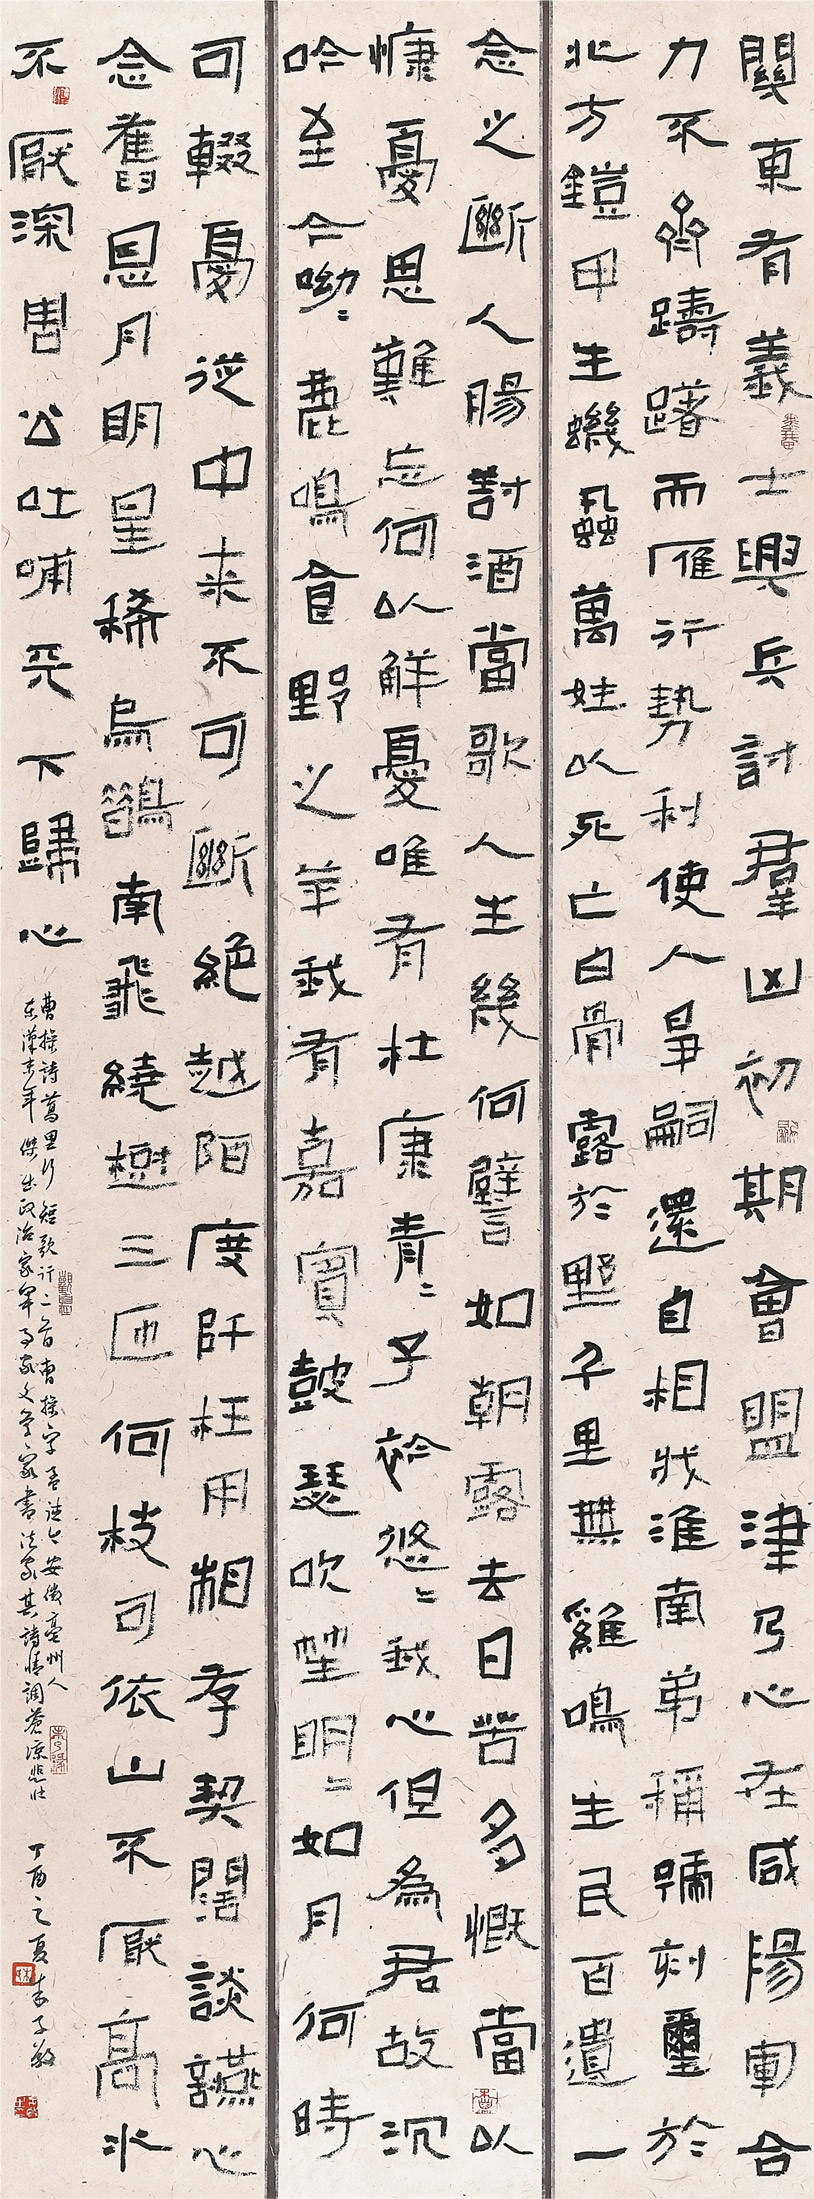 關東有義士興兵討群凶初期會盟津乃心在咸陽軍合
力不齊躊躇而雁行勢利使人爭嗣還自相戕淮南弟稱號刻璽於
北方鎧甲生蟣蝨萬姓以死亡白骨露於野千里無雞鳴生民百遺一
念之斷人腸對酒當歌人生幾何譬如朝露去日苦多慨當以
慷憂思難忘何以解憂唯有杜康青〻子衿悠〻我心但為君故沉
吟至今呦〻鹿鳴食野之苹我有嘉賓鼓瑟吹笙明〻如月何時
可輟憂從中來不可斷絕越陌度阡枉用相存契闊談讌心
念舊恩月明星稀烏鵲南飛繞樹三匝何枝可依山不厭高水
不厭深周公吐哺天下歸心
曹操詩蒿里行短歌行二首曹操字孟德今安徽亳州人
東漢末年傑出政治家軍事家文學家書法家其詩情調蒼涼悲壯
丁酉之夏朱子